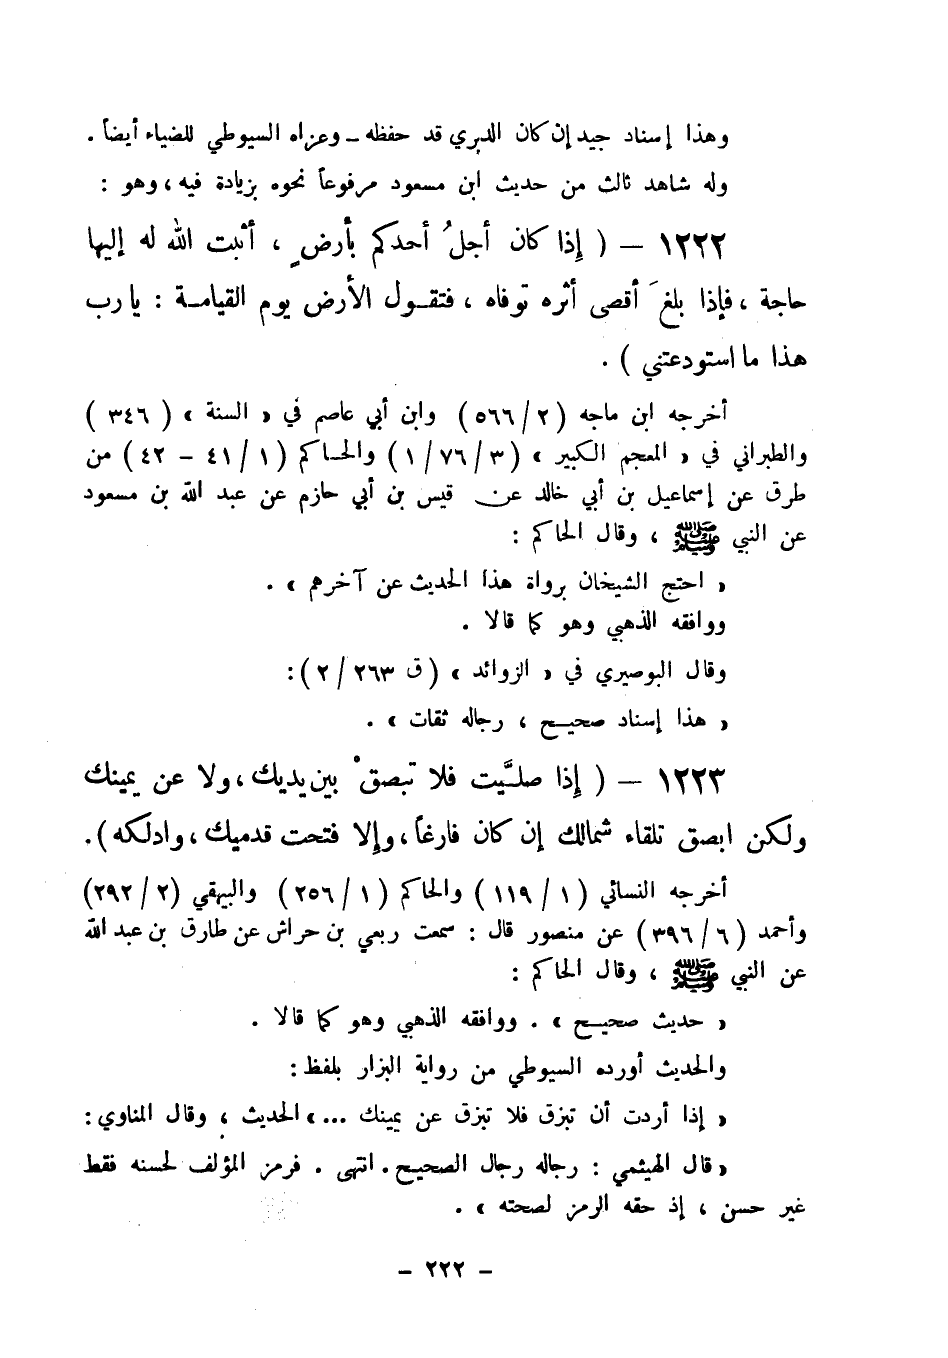 وهذا إسناد جيد إن كان الدبري قد حفظه ـ وعزاه السيوطي للضياء أيضاً .
وله شاهد ثالث من حديث ابن مسعود مرفوعاً نحوه بزيادة فيه ، وهو :
١٢٢٢ – ( إِذا كان أجلُ أحدكم بأرضٍ ، أثبت الله له إليها
حاجة ، فإذا بلغَ أقصى أثره توفاه ، فتقـول الأرض يوم القيامـة : يا رب
هذا ما استودعتني ) .
أخرجه ابن ماجه ( ٢ / ٥٦٦ ) وابن أبي عاصم في « السنة » ( ٣٤٦ )
والطبراني في « المعجم الكبير » ( ٣ / ٧٦ / ١ ) والحـاكم ( ١ / ٤١ – ٤٢ ) من
طرق عن إسماعيل بن أبي خالد عن قيس بن أبي حازم عن عبد الله بن مسعود
عن النبي ﷺ ، وقال الحاكم :
« احتج الشيخان برواة هذا الحديث عن آخرهم » .
ووافقه الذهبي وهو كما قالا .
وقال البوصيري في « الزوائد » ( ق ٢٦٣ / ٢ ) :
« هذا إسناد صحيـح ، رجاله ثقات » .
١٢٢٣ – ( إِذا صلـَّيت فلا تبصقْ بين يديك ، ولا عن يمينك
ولكن ابصق تلقاء شمالك إن كان فارغاً ، وإلا فتحت قدميك ، وادلكه ) .
أخرجه النسائي ( ١ / ١١٩ ) والحاكم ( ١ / ٢٥٦ ) والبيهقي ( ٢ / ٢٩٢ )
وأحمد ( ٦ / ٣٩٦ ) عن منصور قال : سمعت ربعي بن حراش عن طارق بن عبد الله
عن النبي ﷺ ، وقال الحاكم :
« حديث صحيـح » . ووافقه الذهبي وهو كما قالا .
والحديث أورده السيوطي من رواية البزار بلفظ :
« إذا أردت أن تبزق فلا تبزق عن يمينك ... » الحديث ، وقال المناوي :
« قال الهيثمي : رجاله رجال الصحيح . انتهى . فرمز المؤلف لحسنه فقط
غير حسن ، إذ حقه الرمز لصحته » .
– ٢٢٢ –